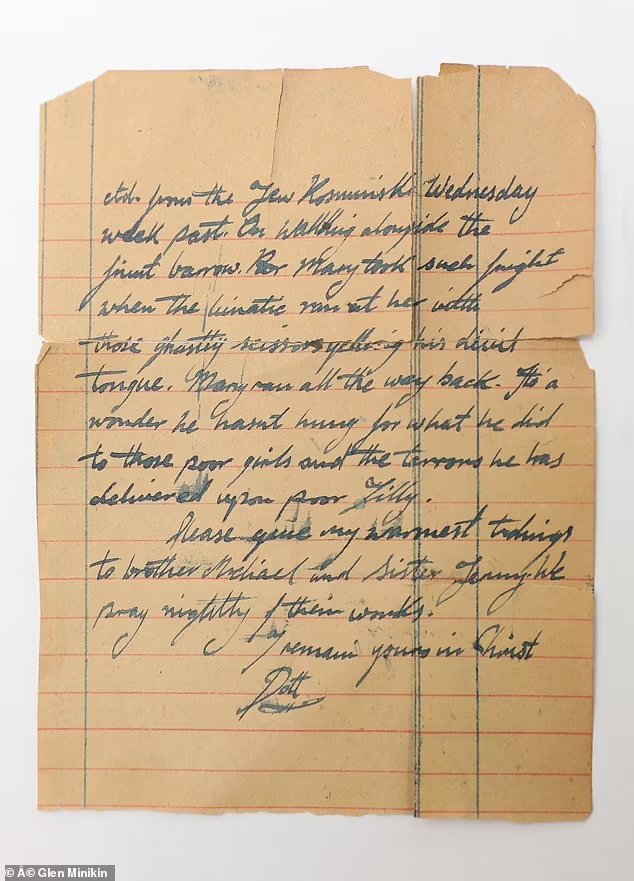 etd. from the Jew Kosminski Wednesday
week past. On Walking alongside the
fruit barrow. Mary took such fright
when the lunatic ran at her with
those ghastly scissors yelling his devil
tongue. Mary ran all the way back. Its a
wonder he hasnt hung for what he did
to those poor girls and the terrors he has
delivered upon poor Tilly.
Please give my warmest tidings
to brother Michael and Sister Jenny. We
pray nightly their works.
I remain yours in Christ
Dott
© Â© Glen Minikin